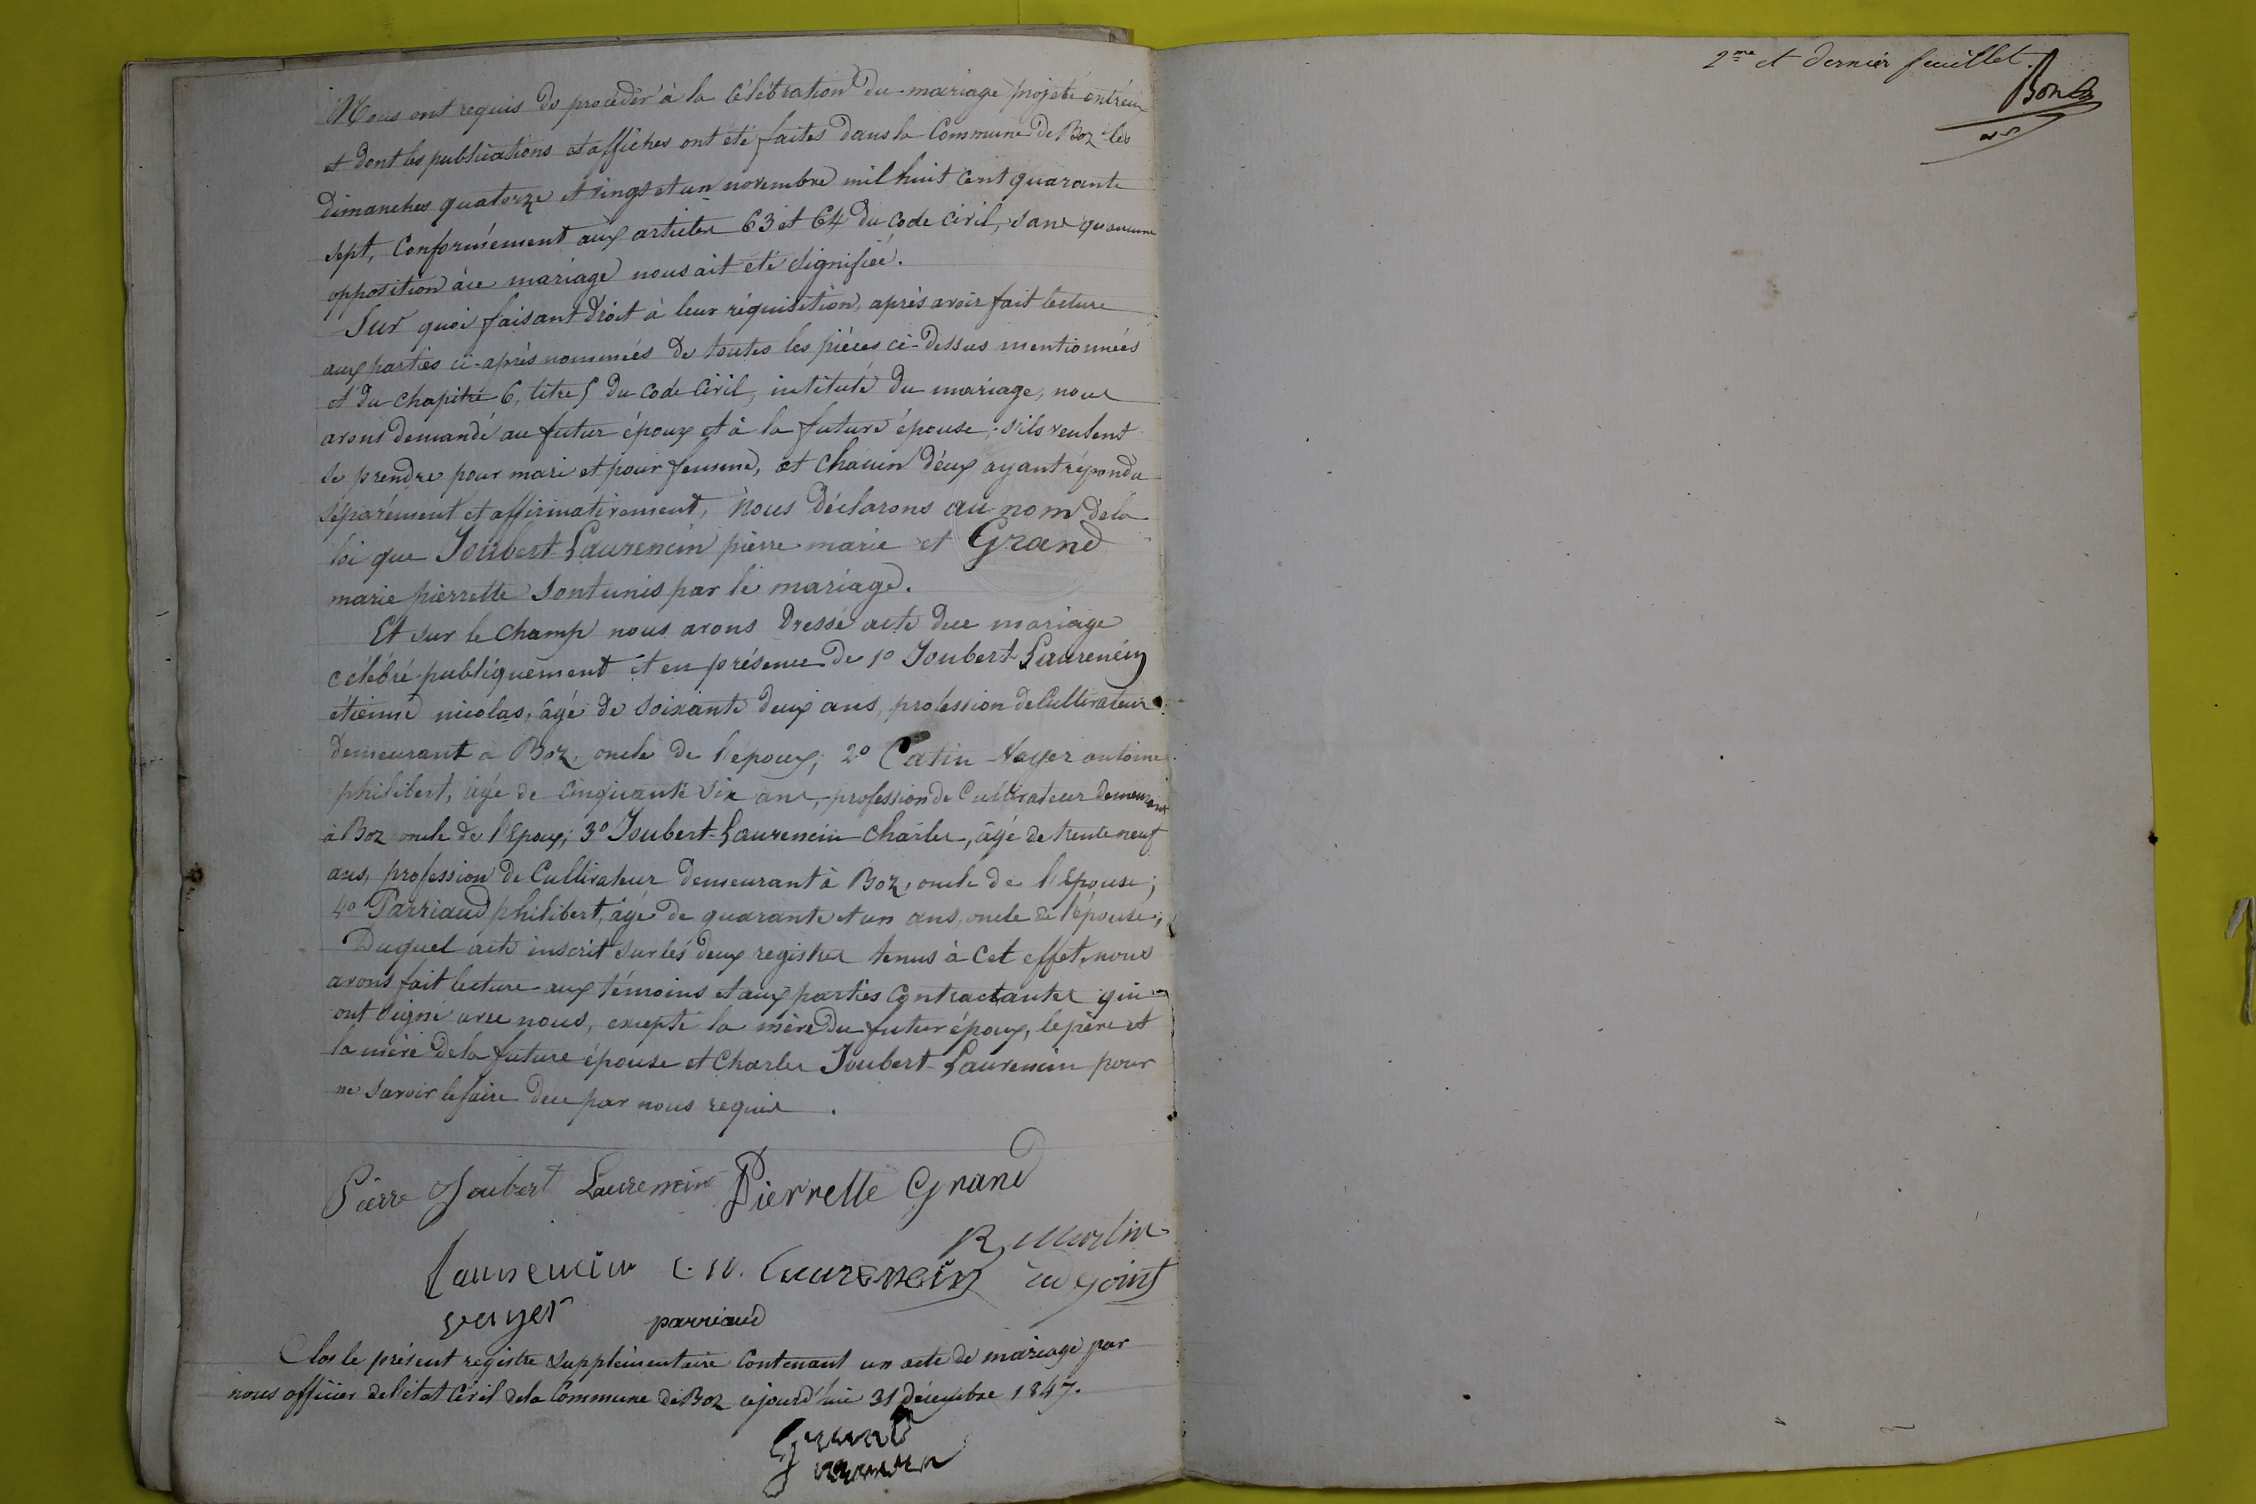 Nous ont requis de procéder à la célébration du mariage projeté entr'eux
et dont les publications et affiches ont été faites dans la Commune de Boz les
dimanches quatorze et vingt et un novembre mil huit cent quarante
sept, Conformément aux articles 63 et 64 du code civil, sans qu'aucune
opposition à ce mariage nous ait été signifiée.
Sur quoi faisant droit à leur réquisition, après avoir fait lecture
aux parties ci-après nommées de toutes les pièces ci-dessus mentionnées
et du chapitre 6, titre 5 du Code Civil, intitulé du mariage, nous
avons demandé au futur époux et à la future épouse, s'ils veulent
se prendre pour mari et pour femme, et chacun d'eux ayant répondu
séparément et affirmativement, Nous déclarons au nom de la
loi que Joubert-Laurencin pierre marie et Grand
marie pierrette sont unis par le mariage.
Et sur le champ nous avons dressé acte de ce mariage
célébré publiquement et en présence de 1o Joubert-Laurencin
étienne nicolas, âgé de soixante deux ans, profession de Cultivateur
demeurant à Boz, oncle de l'époux; 2o Catin-Vayer antoine
philibert, âgé de Cinquante Six ans, profession de Cultivateur demeurant
à Boz oncle de l'Epoux; 3o Joubert-Laurencin Charles, âgé de trente neuf
ans, profession de Cultivateur demeurant à Boz, oncle de l'Epouse;
4o Parriaud philibert, âgé de quarante et un ans, oncle de l'épouse;
Duquel acte inscrit sur les deux registres tenus à cet effet, nous
avons fait lecture aux témoins et aux parties Contractantes qui
ont signé avec nous, excepté la mère du futur époux, le père et
la mère de la future épouse et Charles Joubert-Laurencin pour
ne savoir le faire de ce par nous requis.
Pierre Joubert Laurencin Pierrette Grand
R, Morlin
Laurencin E. N. Laurencin adjoint
vayer parriaud
Clos le présent registre supplémentaire Contenant un acte de mariage par
nous officier de l'état Civil de la Commune de Boz cejourd'hui 31 décembre 1847.
Grand
2me et dernier feuillet.